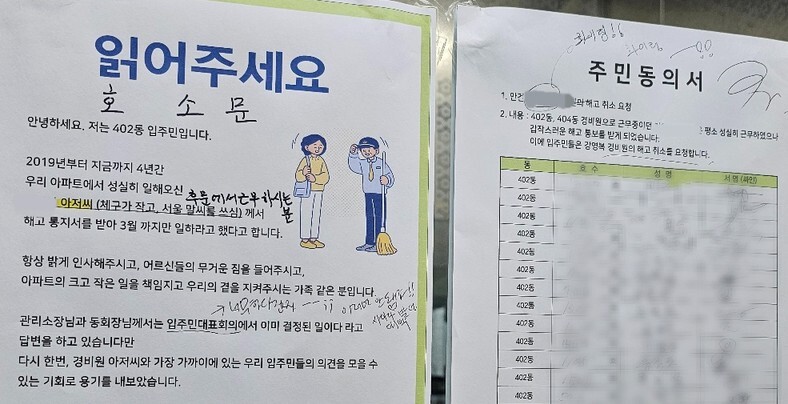 읽어주세요
호 소 문
안녕하세요. 저는 402동 입주민입니다.
2019년부터 지금까지 4년간
우리 아파트에서 성실히 일해오신 후문에서 근무하시는 분
아저씨 (체구가 작고, 서울 말씨를 쓰심) 께서
해고 통지서를 받아 3월 까지만 일하라고 했다고 합니다.
항상 밝게 인사해주시고, 어르신들의 무거운 짐을 들어주시고,
아파트의 크고 작은 일을 책임지고 우리의 곁을 지켜주시는 가족 같은 분입니다.
관리소장님과 동회장님께서는 입주민대표회의에서 이미 결정된 일이다 라고
답변을 하고 있습니다만
다시 한번, 경비원 아저씨와 가장 가까이에 있는 우리 입주민들의 의견을 모을 수
있는 기회로 용기를 내보았습니다.
화이팅!!
화이팅
주 민 동 의 서
1. 안건 해고 취소 요청
2. 내용 : 402동, 404동 경비원으로 근무중이던 평소 성실히 근무하였으나
갑작스러운 해고 통보를 받게 되었습니다.
이에 입주민들은 경비원의 해고 취소를 요청합니다.
동 호 수 성 명 서 명 (싸인)
402동
402동
402동
402동
402동
402동
402동
402동
402동
402동
402동
402동